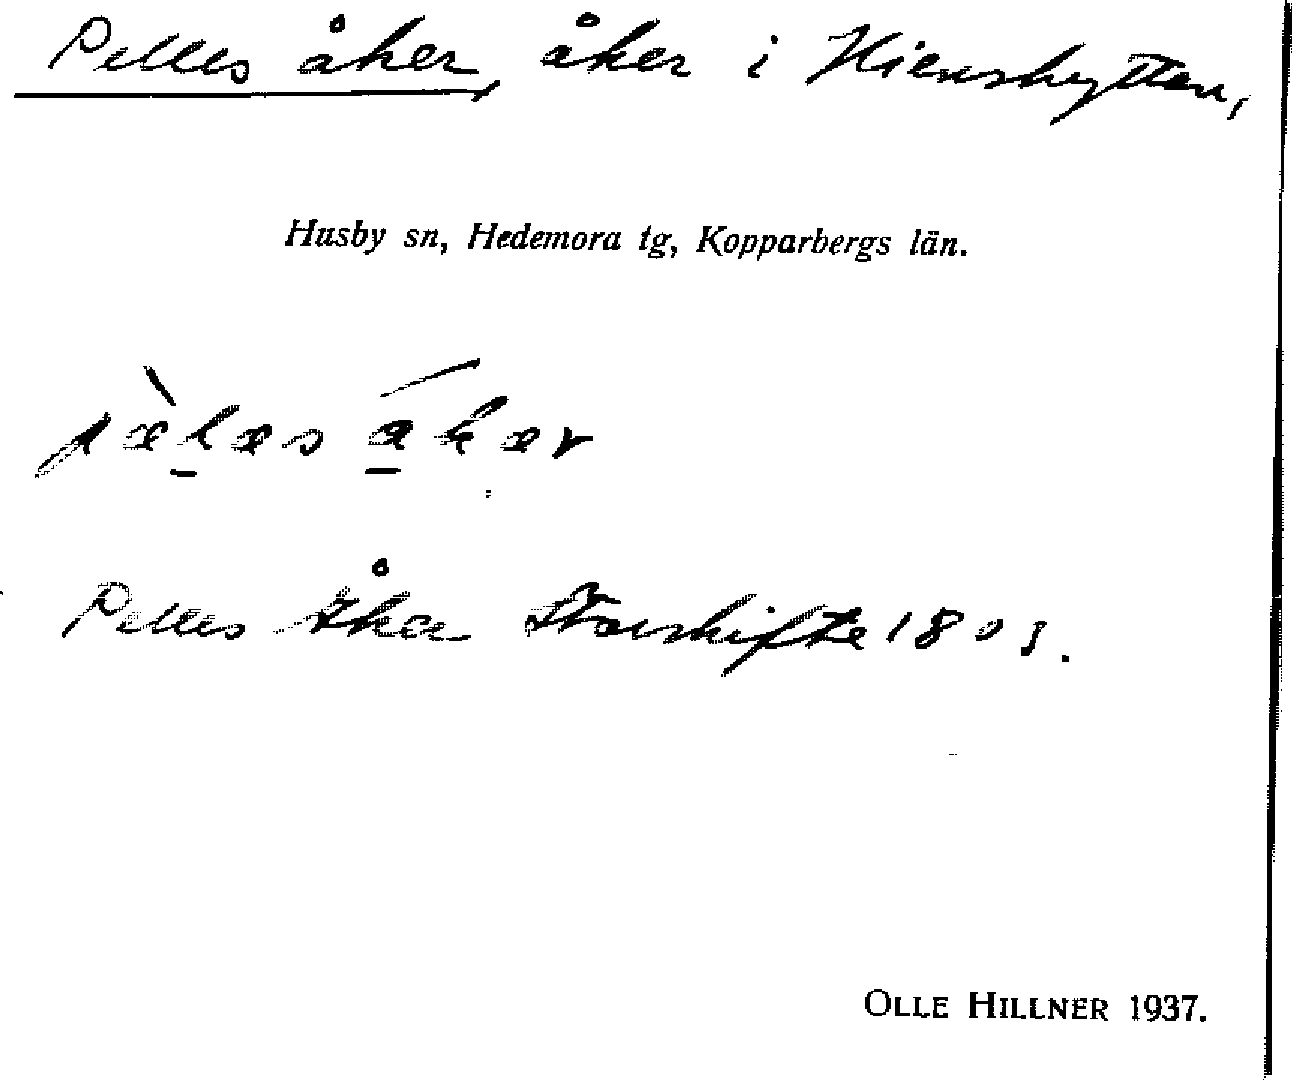 Pelles åker, åker i Hienshyttan,
Husby sn, Hedemora tg, Kopparbergs län.
pælæs åkær
Pelles Åker Storskifte 1803.
OLLE HILLNER 1937.